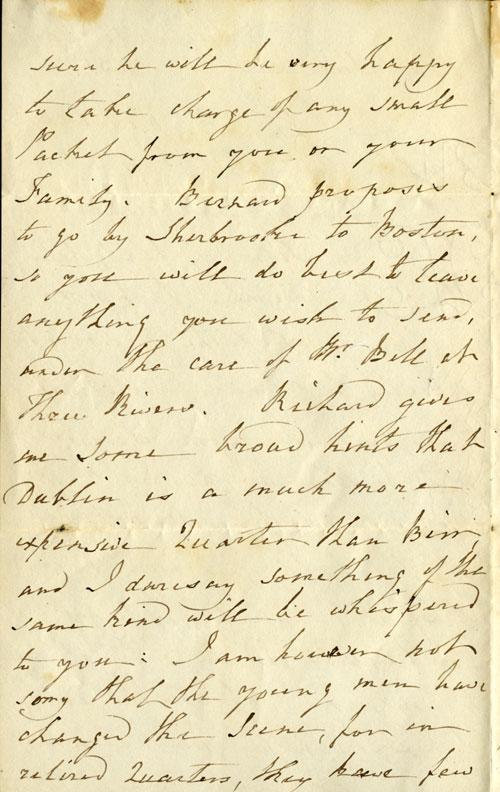 sure he will be very happy
to take charge of any small
Packet from you or your
Family. Bernard proposes
to go by Sherbrooke to Boston,
so you will do best to leave
anything you wish to send,
under the care of Mr. Bell at
Three Rivers. Richard gives
me some broad hints that
Dublin is a much more
expensive Quarter than Birr,
and I daresay something of the
same kind will be whispered
to you: I am however not
sorry that the young men have
changed the Scene, for in
retired Quarters, they have few